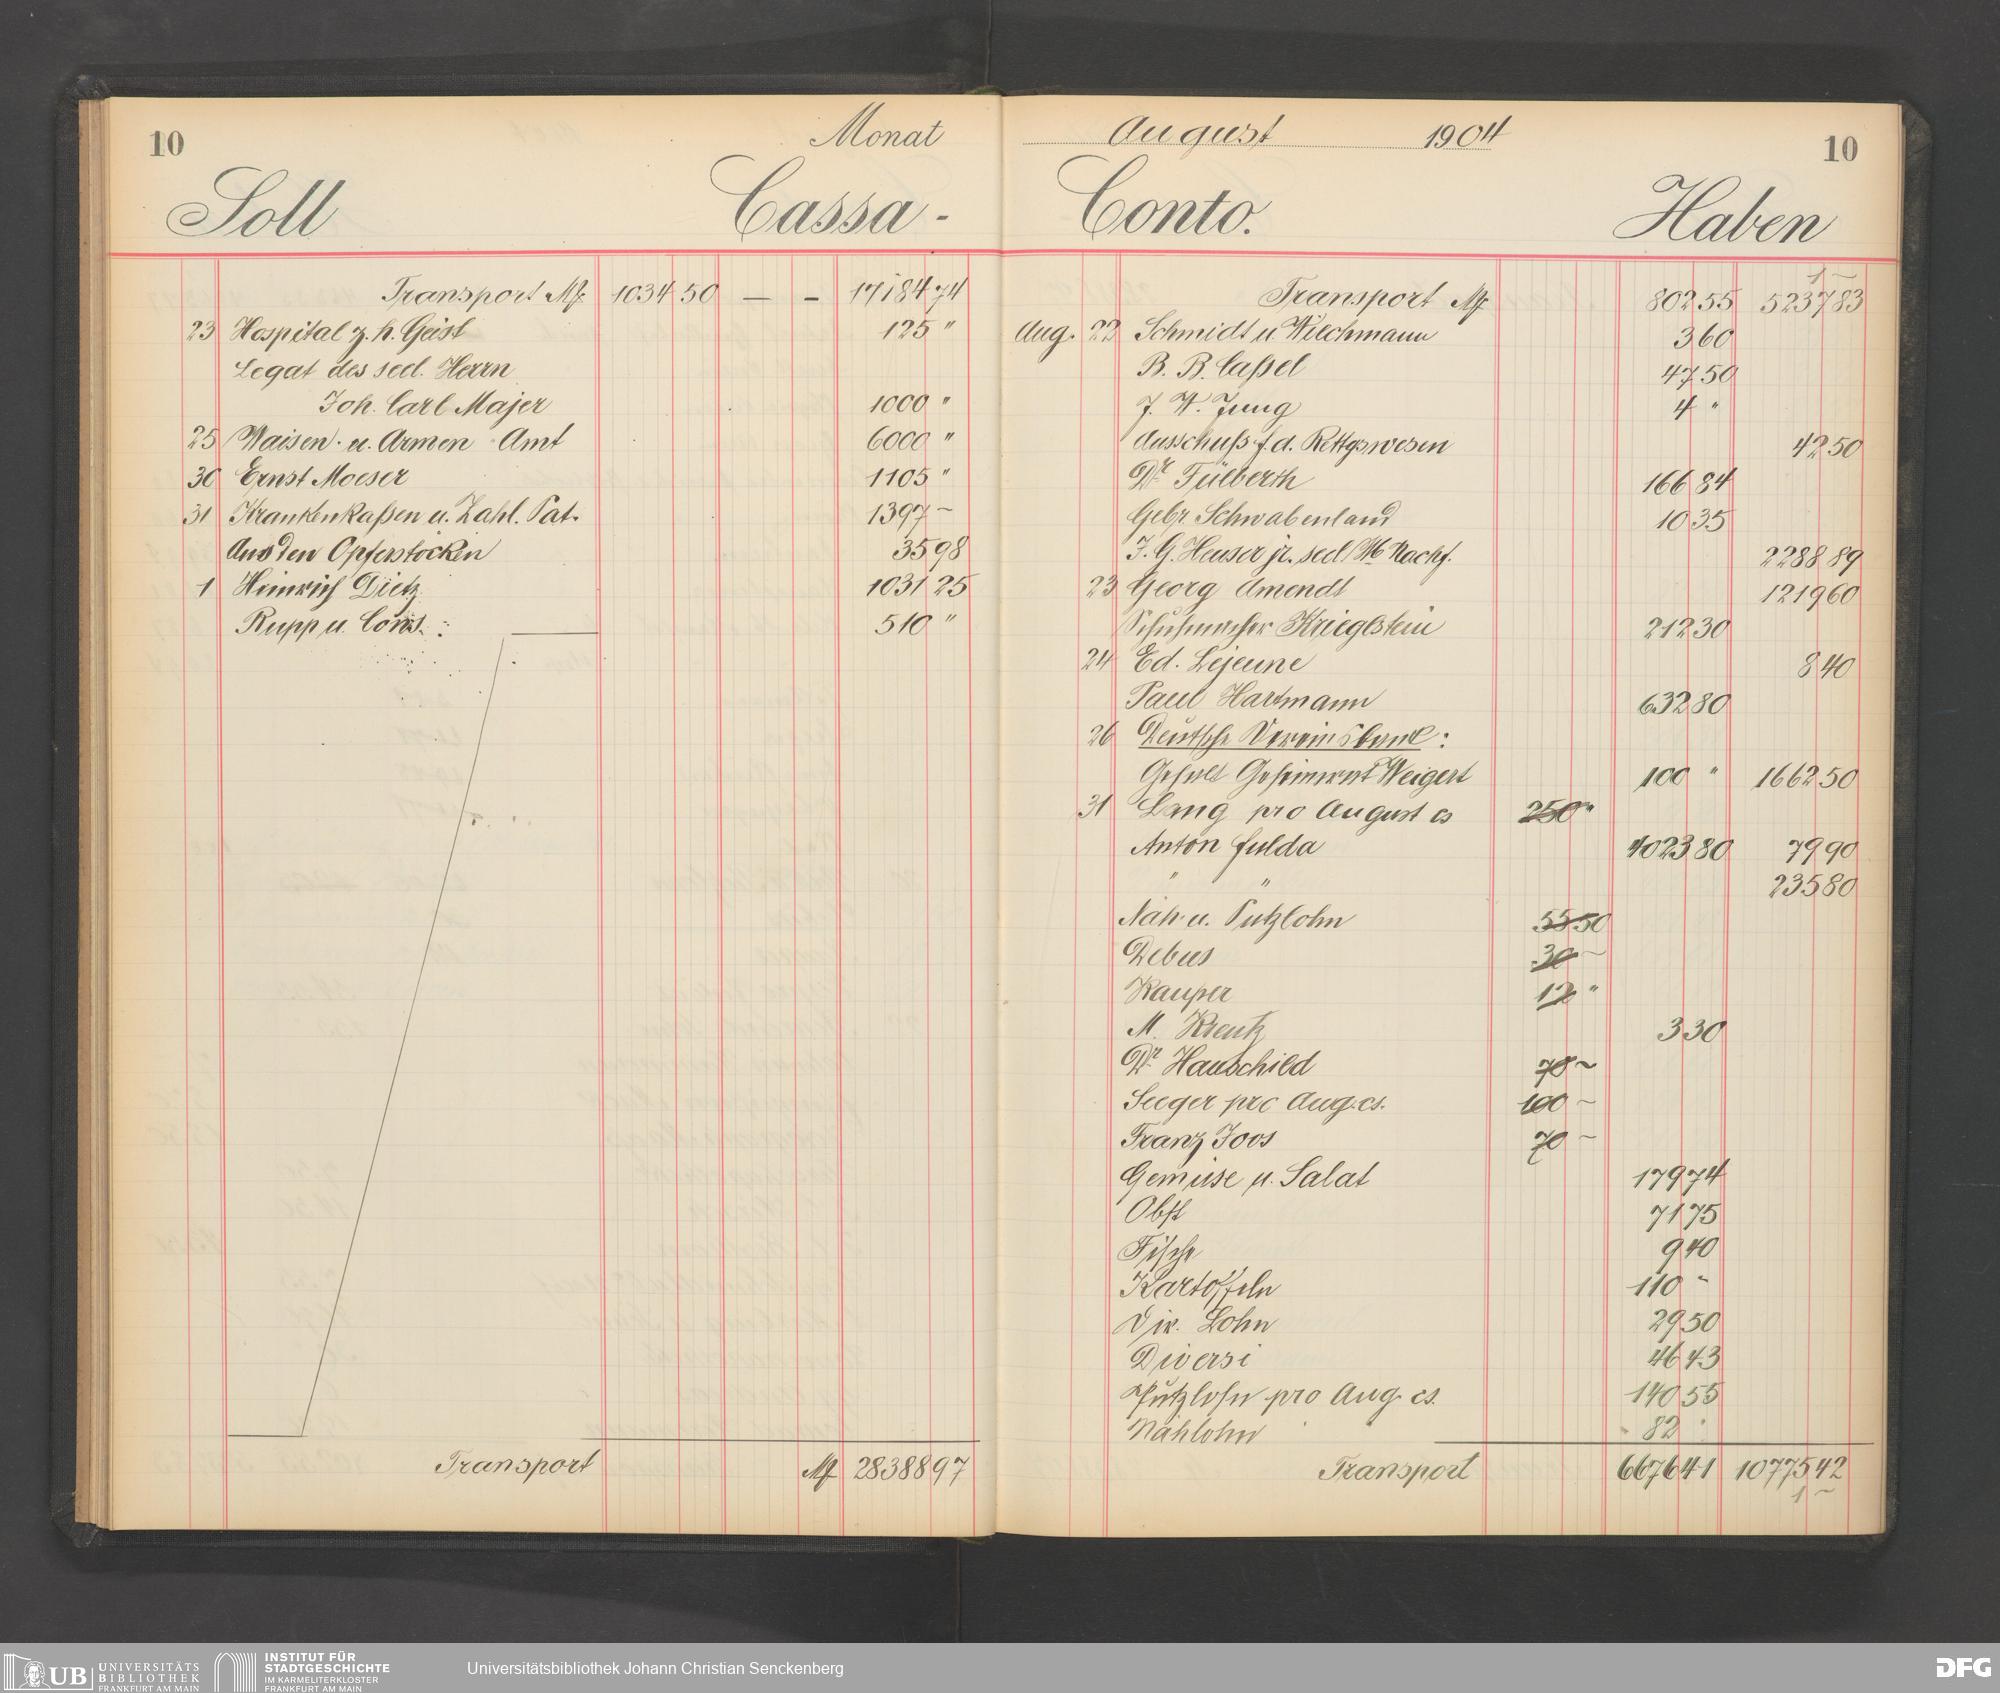 10
Monat
Soll
Cassa-
Transport M 1034 50 — - 17184 74
23 Hospital z. h. Geist 125 "
Legat des seel. Herrn
Joh. Carl Majer 1000 "
25 Waisen- u. Armen Amt 6000 "
30 Ernst Moeser 1105 "
31 Krankenkaßen u. Zahl. Pat. 1397 ~
Aus den Opferstöcken 35 98
1 Heinrich Dietz 1031 25
Rupp u. Cons. 510 "
Transport M 28388 97
August 1904
10
Conto.
Haben
1 ~
Transport M 802 55 5237 83
Aug. 22 Schmidt u. Wiechmann 3 60
B. B. Caßel 47 50
J. W. Jung 4 "
Ausschuß f. d. Rettgswesen 42 50
Dr. Fülberth 166 84
Gebr. Schwabenland 10 35
J. G. Heuser jr. seel. Nachf. 2288 89
23 Georg Amendt 1219 60
Schuhmacher Krieglstein 212 30
24 Ed. Lejeune 8 40
Paul Hartmann 632 80
26 Deutsche Vereinsbank:
Gehalt Geheimrat Weigert 100 " 1662 50
31 Lang pro August cs 250 "
Anton Fulda 4023 80 79 90
" " 235 80
Näh- u. Putzlohn 55 50
Debus 30 ~
Kauper 12 "
M. Kreutz 3 30
Dr. Hauschild 70 ~
Seeger pro Aug. cs. 100 ~
Franz Joos 70 ~
Gemüse u. Salat 179 74
Obst 71 75
Fische 9 40
Kartoffeln 110 -
Div. Lohn 29 50
Diversi 46 43
Putzlohn pro Aug. cs. 140 55
Nählohn 82
Transport 6676 41 10775 42
1 ~
UB UNIVERSITÄTS
BIBLIOTHEK
FRANKFURT AM MAIN
INSTITUT FÜR
STADTGESCHICHTE
IM KARMELITERKLOSTER
FRANKFURT AM MAIN
Universitätsbibliothek Johann Christian Senckenberg
DFG